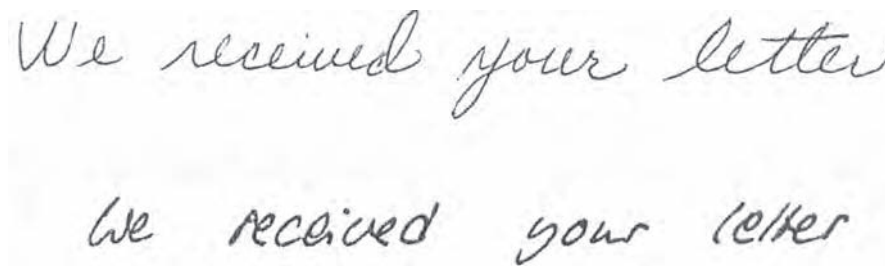 We received your letter
We received your letter